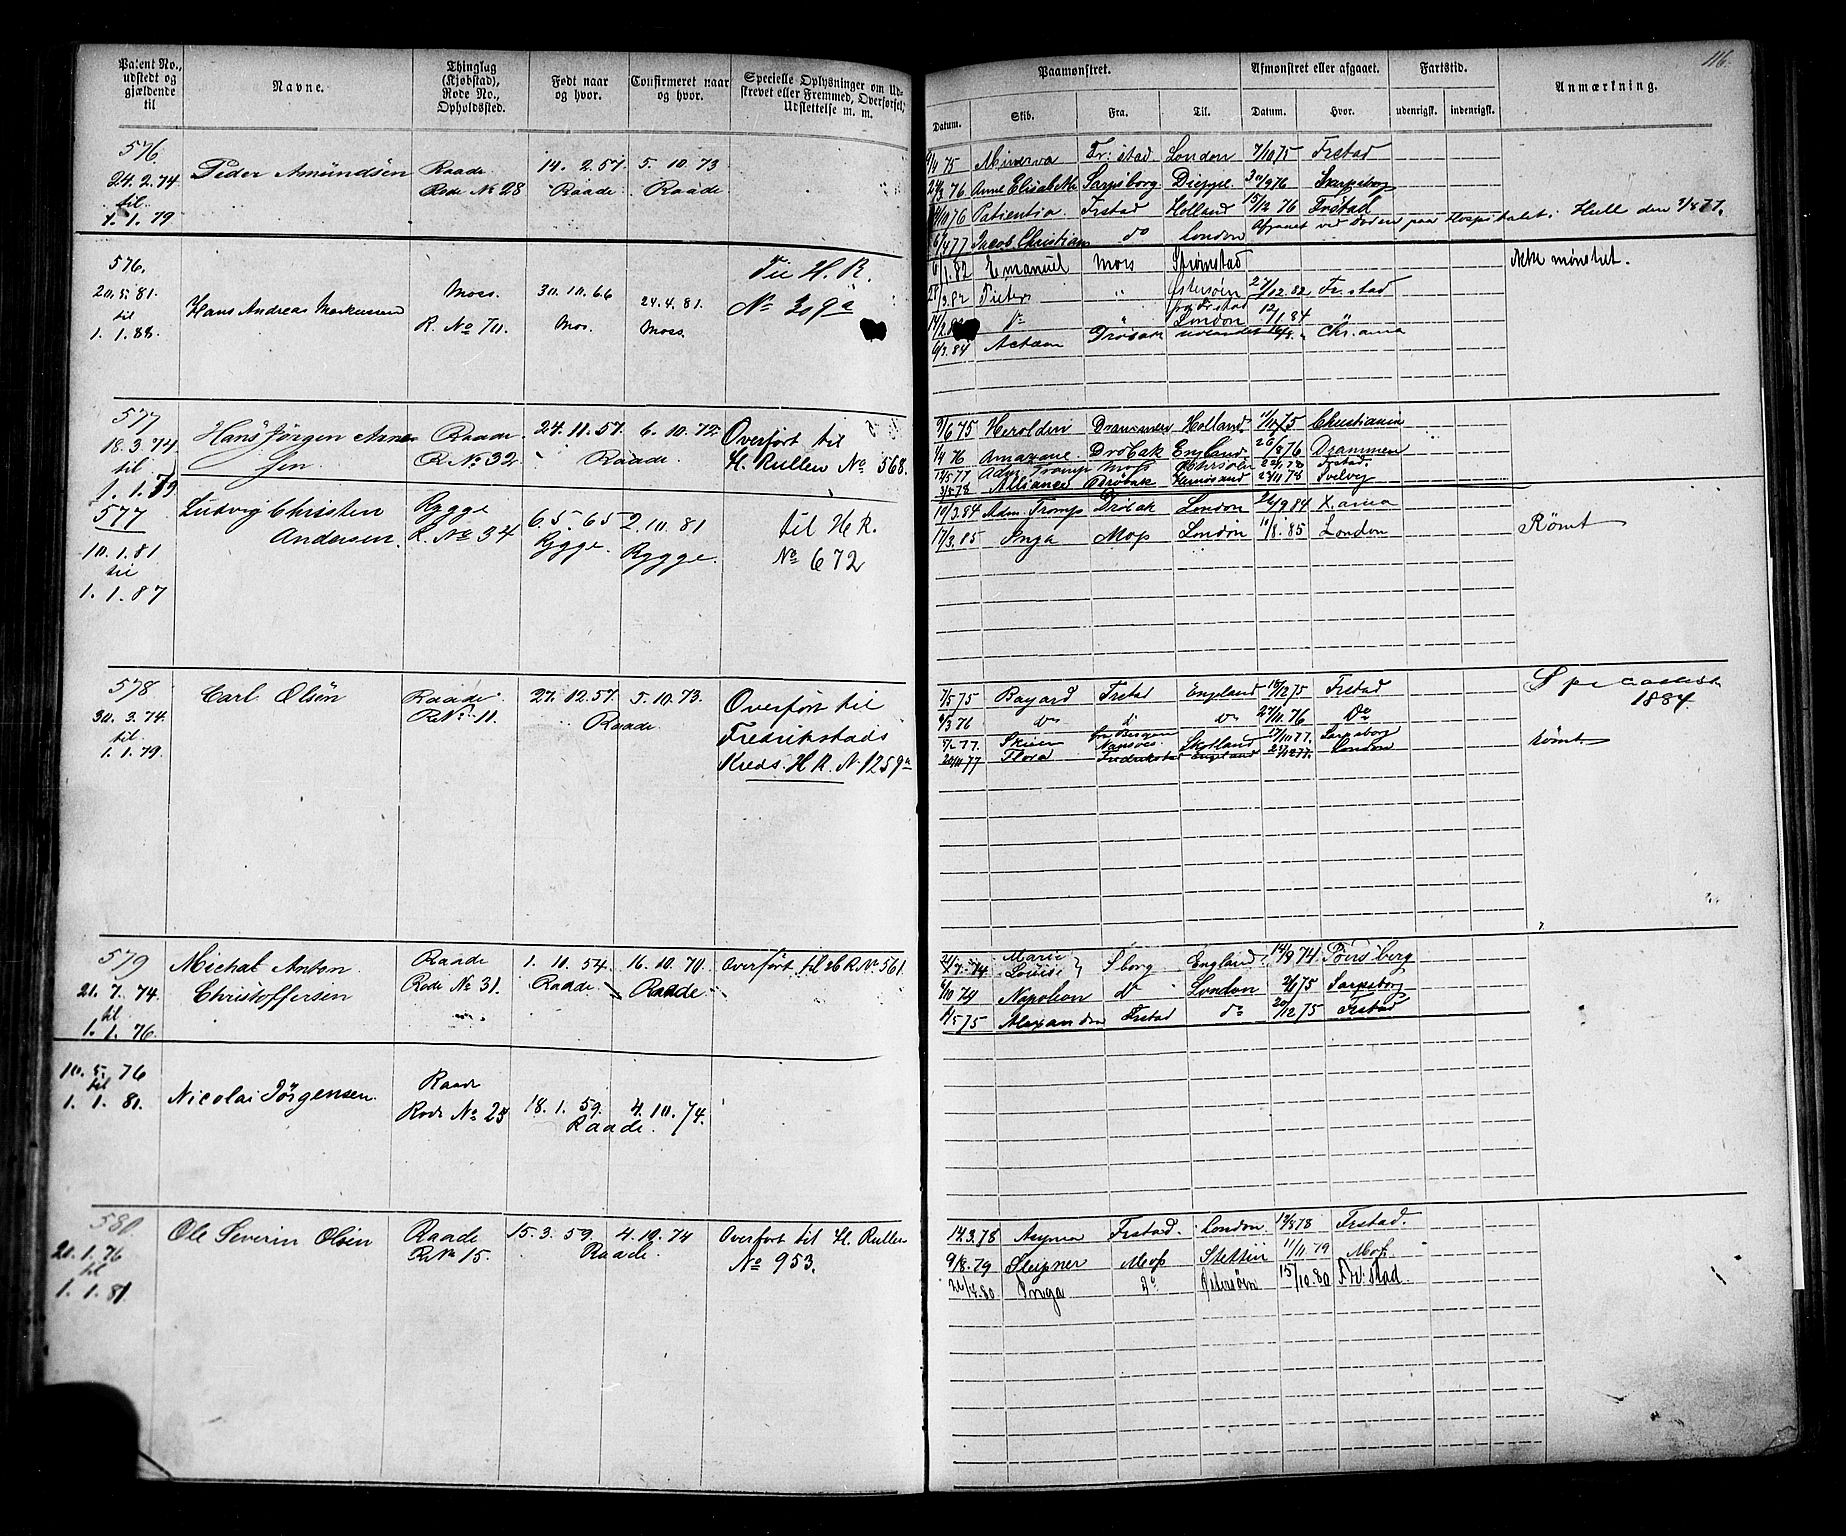 Patent No., udstedt og gjældende til
Navne.
Thinglag (Kjøbstad), Rode No., Opholdssted.
Født naar og hvor.
Confirmeret naar og hvor.
Specielle Oplysninger om Udskrevet eller Fremmed, Overførsel, Udslettelse m. m.
Paamønstret.
Afmønstret eller afgaaet.
Fartstid.
Anmærkning.
116.
Datum.
Skib.
Fra.
Til.
Datum.
Hvor.
udenrigsk.
indenrigsk.
576
24.2.74
til
1.1.79
Peder Amundsen
Raade
Rode No 28
14. 2. 57
Raade
5. 10. 73
Raade
75 Minerva Fr: stad London 7/10 75 Frstad
76 Anne Elisabeth Sarpsborg Dieppe 76 Sarpsborg
10 76 Patientia Frstad Holland 15/12 76 Frstad
Afgaaet ved Døden paa Hospitalet i Hull den
4 77 Jacob Christian do London
576.
20.5.81
til
1.1.88
Hans Andreas Markussen
Moss.
R. No 711.
30.10.66
Mos.
24.4.81.
Moss
Til H. R.
No 309a
1.82 Emanuel Moss Strømstad
Ikke mønstret.
Pieter " Østersøen 27/12.82 Fr.stad
do " London 12/1.84
6/3.84 Actæon Drøbak udlandet Chr.ania
577
18.3.74
til
1.1.79
Hans Jørgen Arnesen
Raade
R No 32
24. 11. 57
Raade.
6. 10. 72
Overført til
H. Rullen No 568.
9/6 75 Herolden Drammen Holland 75 Christiania
1/4 76 Amazone Drøbak England 26/8 76 Drammen
12/5 77 Adm Tromp Moss 78 Frstad.
3/5 78 Alliance Drøbak Hernøsand 78 Svelvig
577
10.1.81
til
1.1.87
Ludvig Christen
Andersen.
Rygge
R. No 34
6.5.65
Rygge.
2.10.81
Rygge.
til H R.
No 672
19/3.84 Adm. Tromp Drøbak London 26/9 84 X.ania
17/3.85 Inga Moss London 85 London
Rømt
578
30.3.74.
til
1.1.79.
Carl Olsen
Raade
R No 11.
27. 12. 57.
Raade.
5. 10. 73.
Overført til
Fredrikstads
Kreds. H R. No 1259a
7/5 75 Bayard Frstad England 12 75 Frstad
3 76 do do do 27/11. 76 Do
77. Skien Skotland 77. Sarpsborg
22/11 77 Flora Fredrikstad England 77. London
1884.
Rømt
579
21.7.74.
til
1.1.76.
Michal Anton
Christoffersen
Raade
Rode No 31.
1. 11. 54.
Raade.
16. 10. 70.
Raade.
Overført til H R No 561.
7. 74 Marie
Louise } Sborg England 14/9 74 Tønsberg
10 74 Napoleon do London 75 Sarpsborg
5 75 Alexandra Frstad do 20/12 75 Frstad
10.5.76
til
1.1.81.
Nicolai Jørgensen.
Raade
Rode No 25
18. 1. 59.
Raade.
4. 10. 74.
580
21.1.76
til
1.1.81
Ole Severin Olsen
Raade
R No 15.
15. 3. 59.
Raade.
4. 10. 74
Overført til H. Rullen
No 953.
14.3.78 Frstad. London 78 Frstad.
9/8.79 Sleipner Moss Stettin 11/11.79 Moss
26/4.80 Inga do Østersøen 15/10.80 Fr: stad